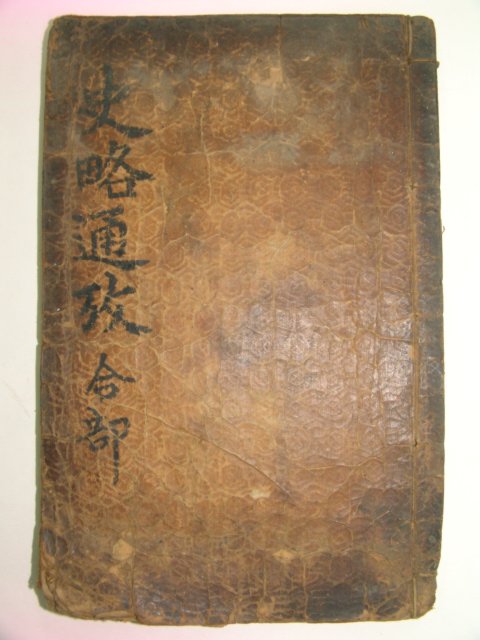 史略通攷 合部